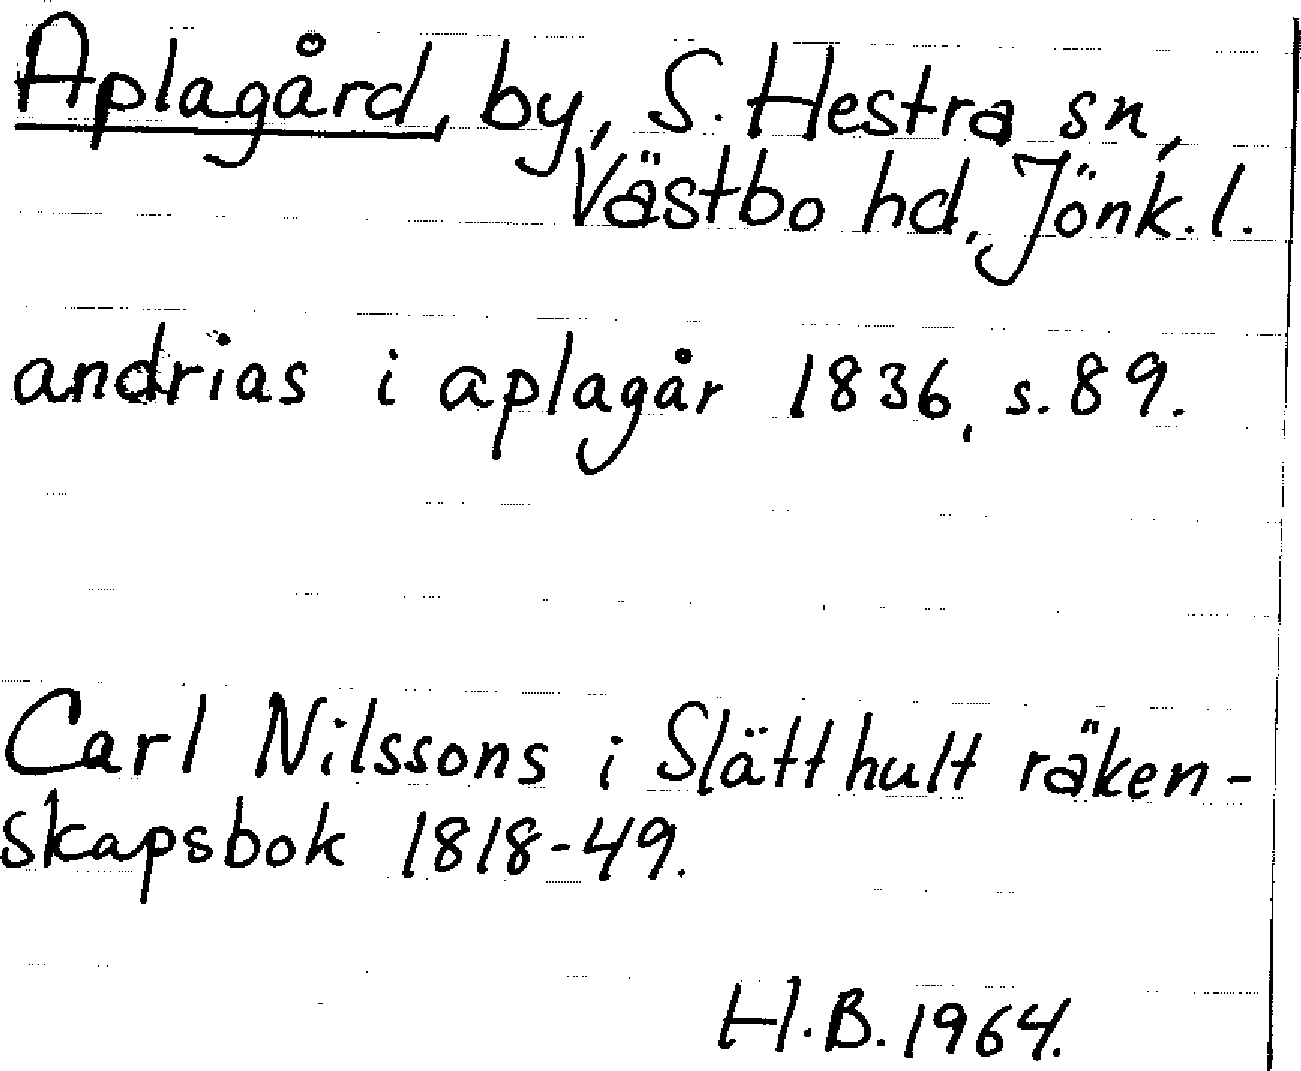 Aplagård, by, S. Hestra sn,
Västbo hd, Jönk. l.
andrias i aplagår 1836, s. 89.
Carl Nilssons i Slätthult räken-
skapsbok 1818-49.
H.B. 1964.